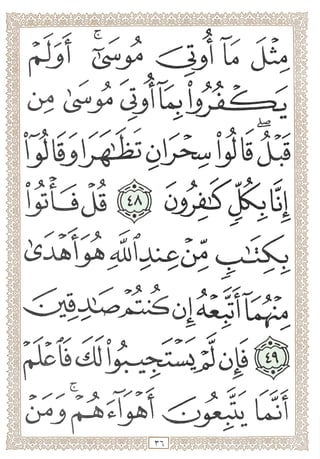 مِثْلَ مَآ أُوتِىَ مُوسَىٰٓ ۚ أَوَلَمْ
يَكْفُرُوا۟ بِمَآ أُوتِىَ مُوسَىٰ مِن
قَبْلُ ۖ قَالُوا۟ سِحْرَانِ تَظَـٰهَرَا وَقَالُوٓا۟
إِنَّا بِكُلٍّ كَـٰفِرُونَ ٤٨ قُلْ فَأْتُوا۟
بِكِتَـٰبٍ مِّنْ عِندِ ٱللَّهِ هُوَ أَهْدَىٰ
مِنْهُمَآ أَتَّبِعْهُ إِن كُنتُمْ صَـٰدِقِينَ
٤٩ فَإِن لَّمْ يَسْتَجِيبُوا۟ لَكَ فَٱعْلَمْ
أَنَّمَا يَتَّبِعُونَ أَهْوَآءَهُمْ ۚ وَمَنْ
٣٦